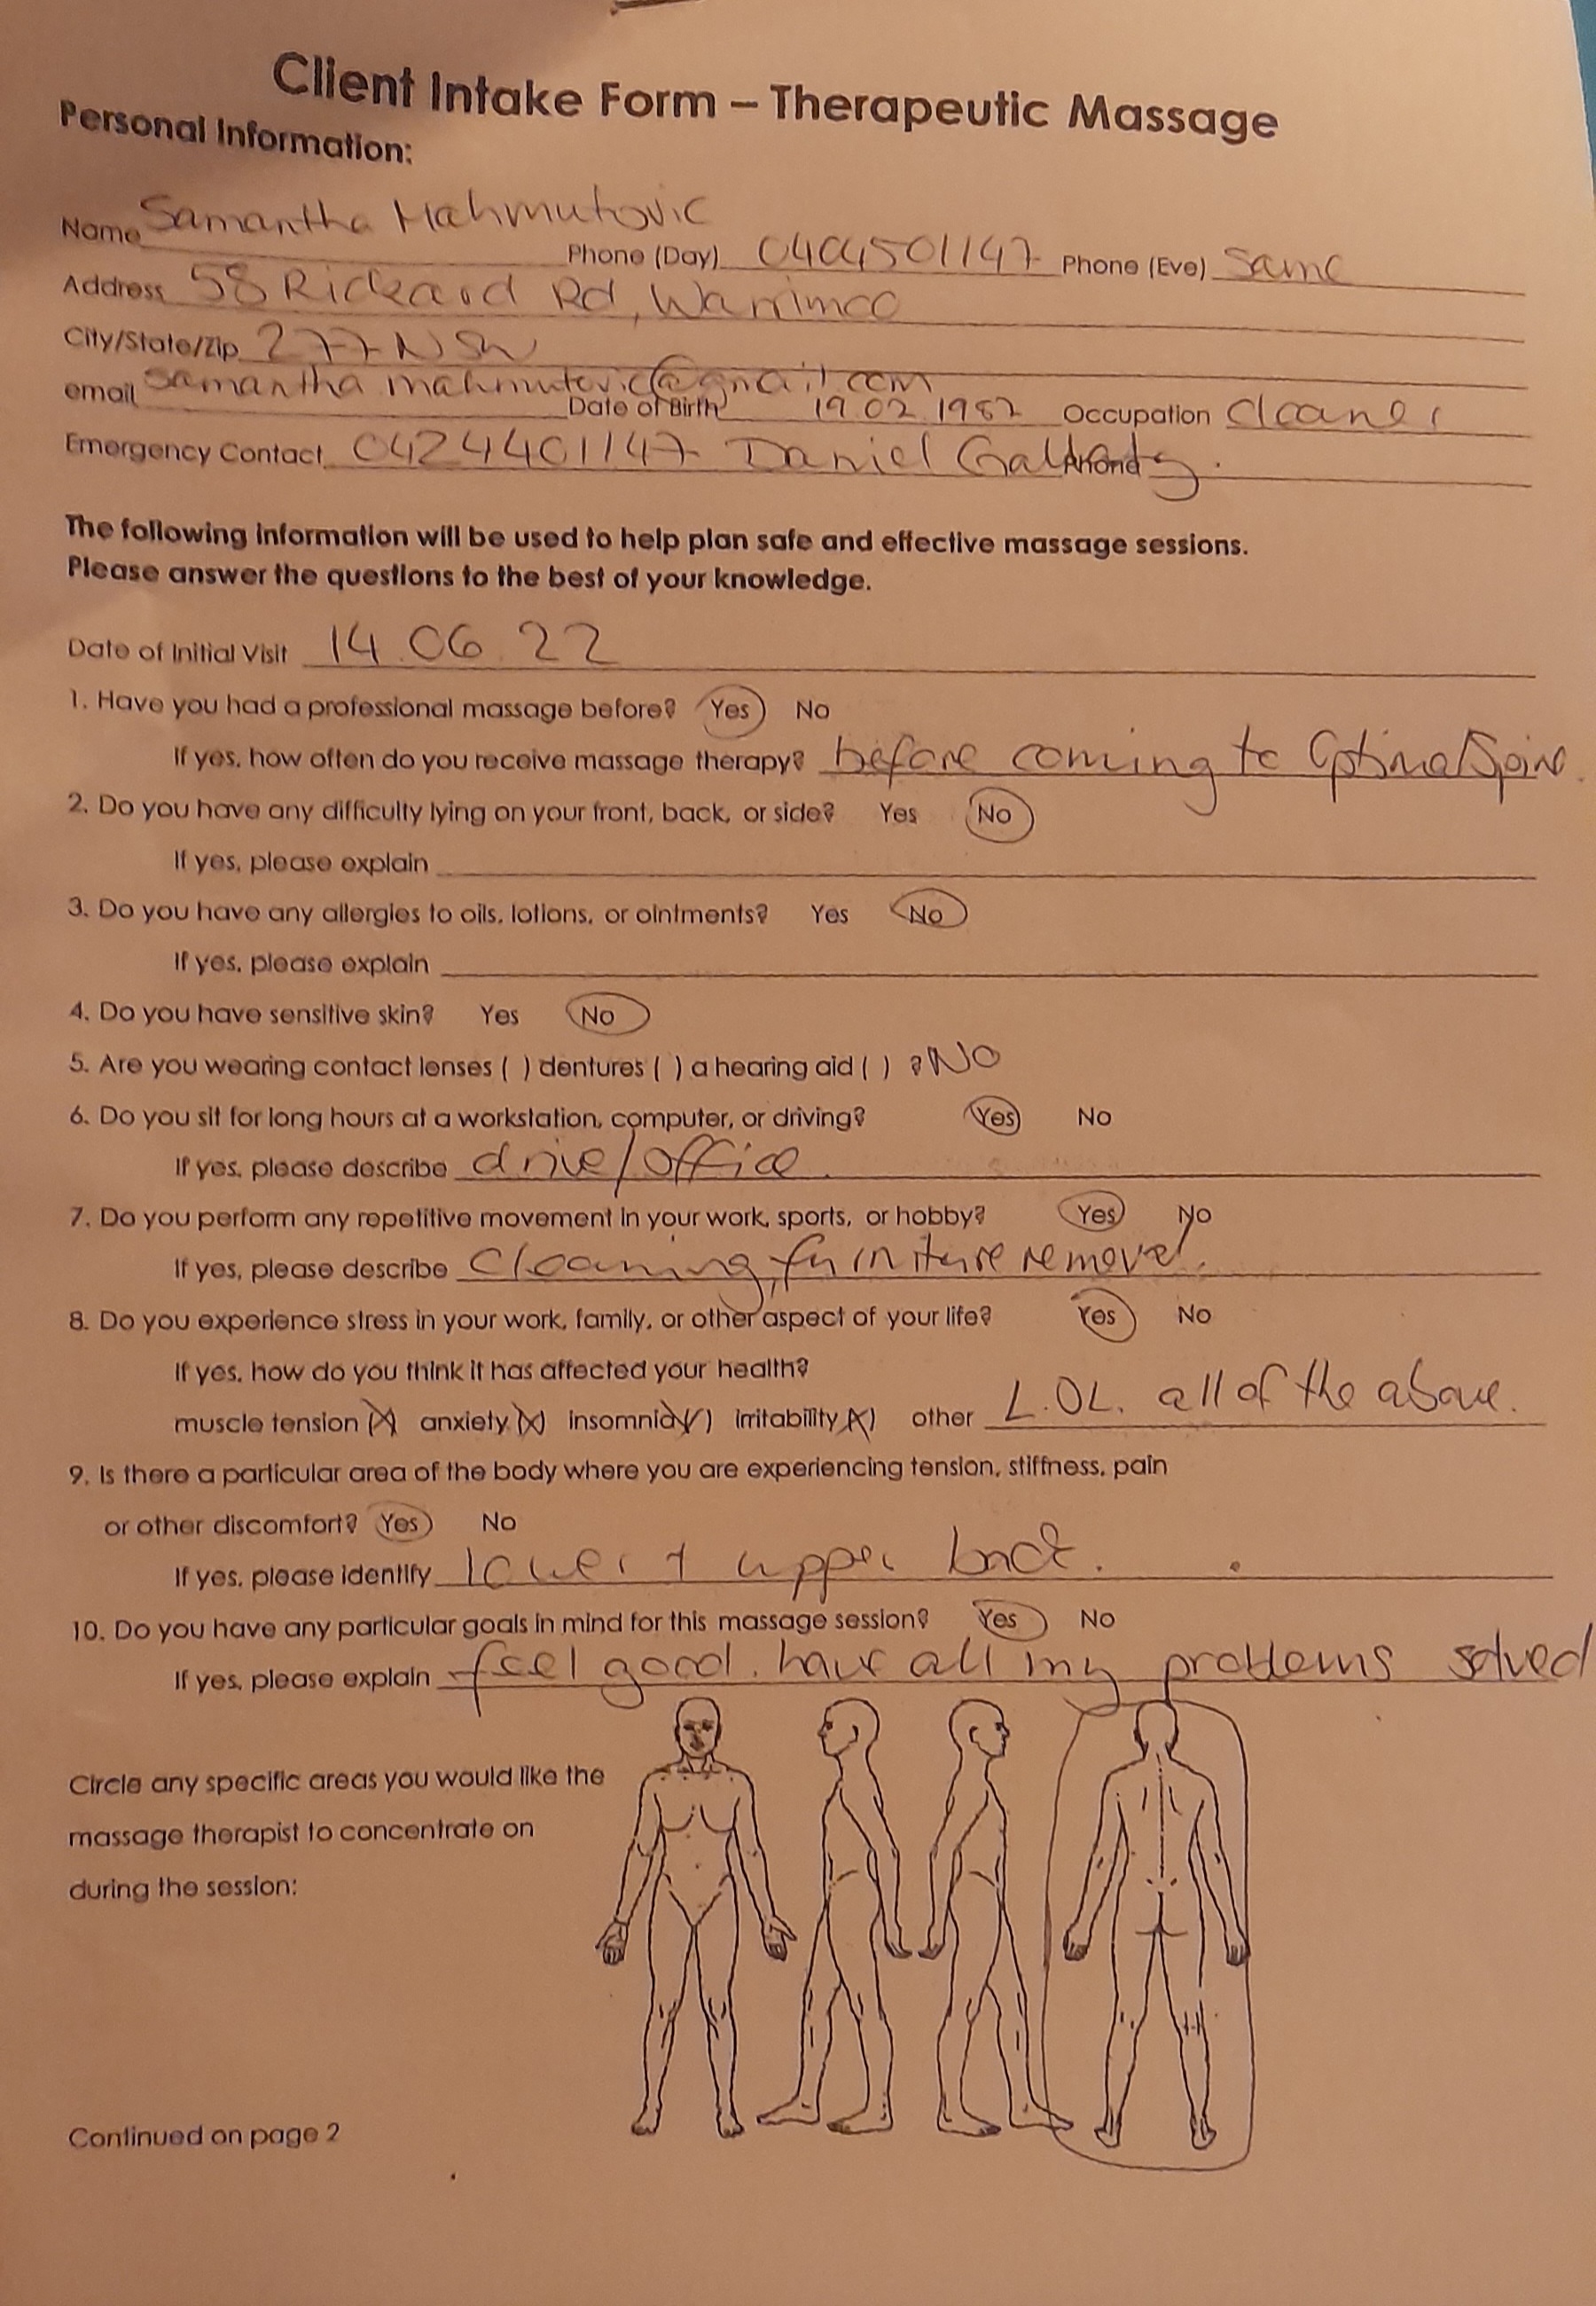 Client Intake Form – Therapeutic Massage
Personal Information:
Name Samantha Mahmutovic
Phone (Day) 0404501147 Phone (Eve) same
Address 58 Rickard Rd, Warrimoo
City/State/Zip 277 NSW
email samantha mahmutovic@gmail.com
Date of Birth 19.02.1982 Occupation cleaner
Emergency Contact 0424401147 Daniel Phone
The following information will be used to help plan safe and effective massage sessions.
Please answer the questions to the best of your knowledge.
Date of Initial Visit 14.06.22
1. Have you had a professional massage before? Yes No
If yes, how often do you receive massage therapy? before coming to Optimal Spine.
2. Do you have any difficulty lying on your front, back, or side? Yes No
If yes, please explain
3. Do you have any allergies to oils, lotions, or ointments? Yes No
If yes, please explain
4. Do you have sensitive skin? Yes No
5. Are you wearing contact lenses ( ) dentures ( ) a hearing aid ( ) ? NO
6. Do you sit for long hours at a workstation, computer, or driving? Yes No
If yes, please describe drive/office.
7. Do you perform any repetitive movement in your work, sports, or hobby? Yes No
If yes, please describe cleaning, furniture removal.
8. Do you experience stress in your work, family, or other aspect of your life? Yes No
If yes, how do you think it has affected your health?
muscle tension (X) anxiety (X) insomnia (X) irritability (X) other L.OL. all of the above.
9. Is there a particular area of the body where you are experiencing tension, stiffness, pain
or other discomfort? Yes No
If yes, please identify lower + upper back.
10. Do you have any particular goals in mind for this massage session? Yes No
If yes, please explain feel good. have all my problems solved
Circle any specific areas you would like the
massage therapist to concentrate on
during the session:
Continued on page 2